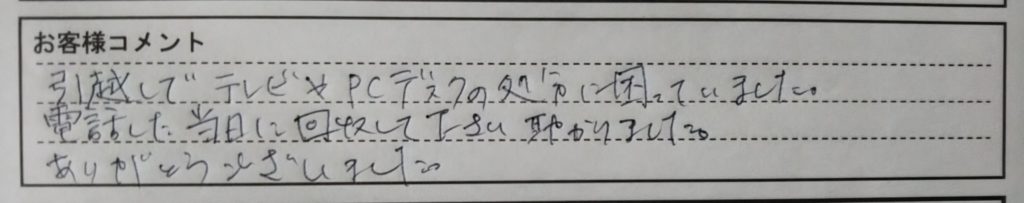 お客様コメント
引越しで テレビや PCデスクの処分に困っていました。
電話した当日に回収して下さい 助かりました。
ありがとうございました。